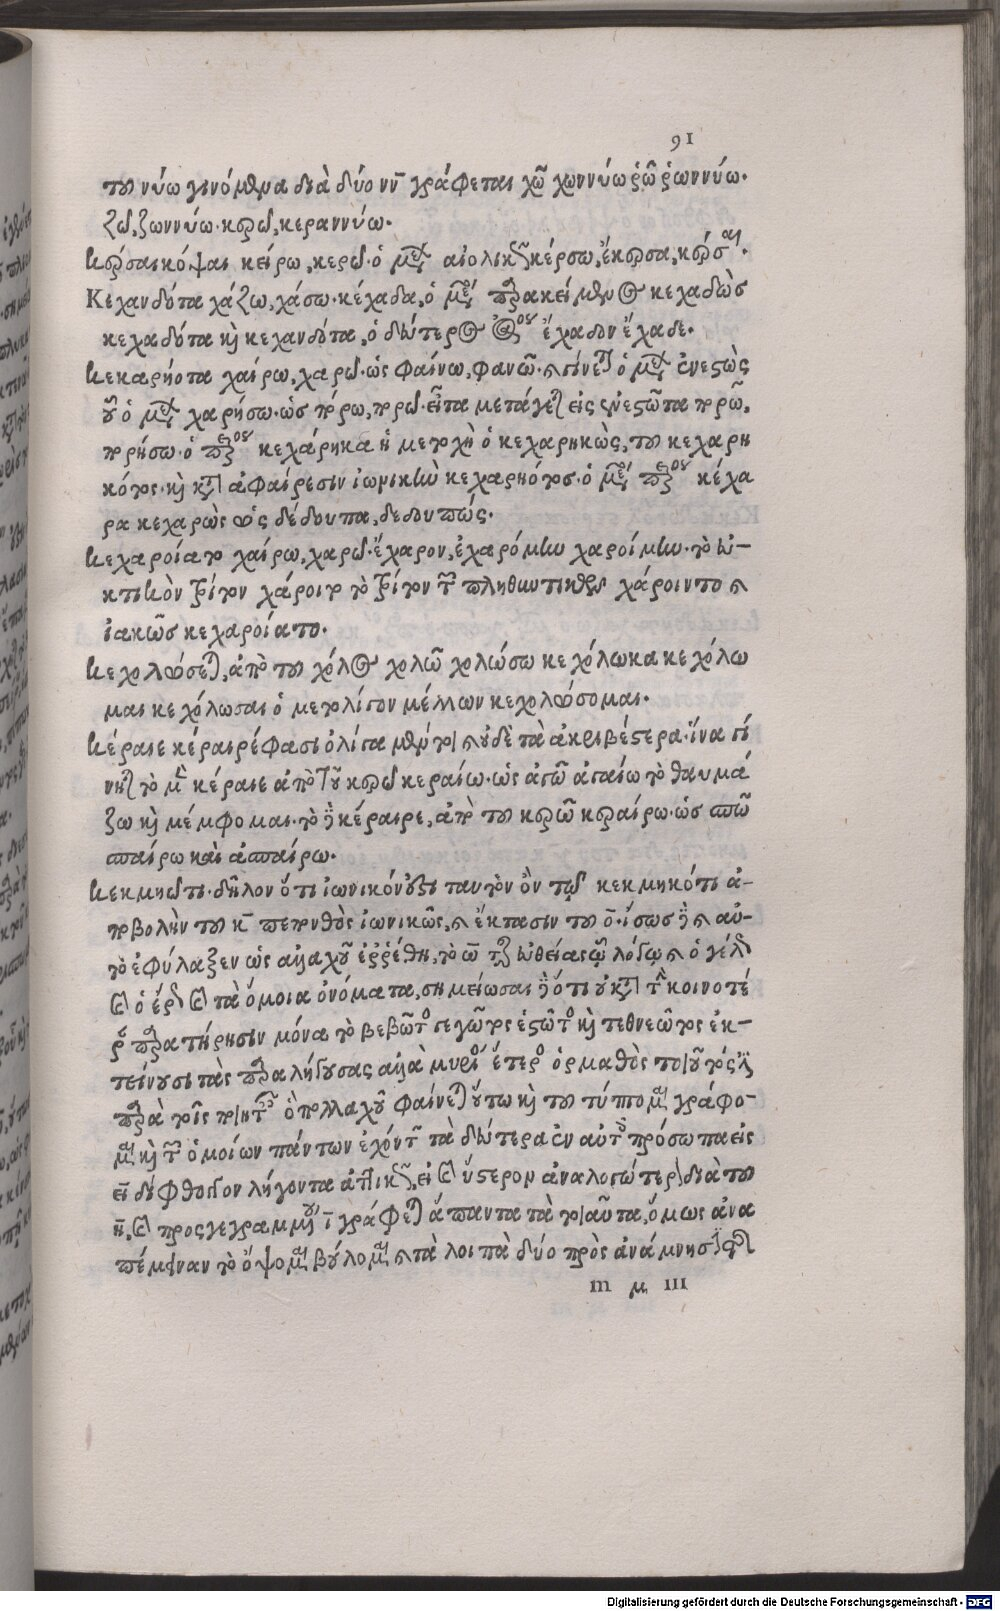 91
του νύω γινόμενα διὰ δύο νν γράφεται χῶ χωννύω ῥῶ ῥωννύω.
ζῶ, ζωννύω. κερῶ, κεραννύω.
κέρσαι κόψαι κείρω, κερῶ. ὁ μέλ αἰολικῶς κέρσω, ἔκερσα, κέρσαι.
Κεχανδότα χάζω, χάσω. κέχαδα, ὁ μέσ παρακείμενος κεχαδὼς
κεχαδότα καὶ κεχανδότα, ὁ δεύτερος ἔχαδον ἔχαδε.
κεκαρήοτα χαίρω, χαρῶ. ὡς φαίνω, φανῶ. γίνεται ὁ μέλ ἐνεστὼς
οὗ ὁ μέλ χαρήσω. ὡς τείρω, τερῶ. εἶτα μετάγει εἰς ἐνεστῶτα τερῶ,
τρήσω. ὁ παρακείμενος κεχάρηκα ἡ μετοχὴ ὁ κεχαρηκὼς, του κεχαρη
κότος. καὶ κατὰ ἀφαίρεσιν ἰωνικὴν κεχαρηότος. ὁ μέσ παρακείμενος κέχα
ρα κεχαρὼς ὡς δέδουπα, δεδουπώς.
κεχαροίατο χαίρω, χαρῶ. ἔχαρον, ἐχαρόμην χαροίμην. τὸ εὐ-
κτικὸν τρίτον χάροιτο τὸ τρίτον τῶν πληθυντικῶν χάροιντο καὶ
ἰακῶς κεχαροίατο.
κεχολώσεται, ἀπὸ του χόλος χολῶ χολώσω κεχόλωκα κεχόλω
μαι κεχόλωσαι ὁ μετολίγον μέλλων κεχολώσομαι.
κέραιε κέραιρέ φασι ὀλίγα μέντοι καὶ οὐδὲ τὰ ἀκριβέστερα. ἵνα γί
νηται τὸ μὲν κέραιε ἀπὸ τοῦ κερῶ κεραίω. ὡς ἀγῶ ἀγαίω τὸ θαυμά
ζω καὶ μέμφομαι. τὸ δὲ κέραιρε, ἀπὸ του κερῶ κεραίρω. ὡς σπῶ
σπαίρω καὶ ἀσπαίρω.
κεκμηῶτι. δῆλον ὅτι ἰωνικόν ἐστι ταυτὸν ὂν τῷ κεκμηκότι ἀ-
ποβολὴν του κ πεπονθὸς ἰωνικῶς, καὶ ἔκτασιν του ο. ἴσως δὲ καὶ αὐ-
τὸ ἐφύλαξεν ὡς ἀλλαχοῦ ἐρρέθη, τὸ ω τῆς εὐθείας ᾧ λόγῳ καὶ ὁ γέλως
καὶ ὁ ἔρως καὶ τὰ ὅμοια ὀνόματα, σημείωσαι δὲ ὅτι οὐ κατὰ τὴν κοινοτέ
ραν παρατήρησιν μόνα τὸ βεβῶτος γεγῶτος ἑστῶτος καὶ τεθνεῶτος ἐκ-
τείνουσι τὰς παραληγούσας ἀλλὰ μυρίος ἕτερος ὁρμαθὸς τοιοῦτός ἐστι
παρὰ τοῖς ποιηταῖς ὁπολλαχοῦ φαίνεται οὕτω καὶ του τύπτομαι γράφο-
μαι καὶ τῶν ὁμοίων πάντων ἐχόντων τὰ δεύτερα ἐν αὐτοῖς πρόσωπα εἰς
ει δίφθογγον λήγοντα ἀττικῶς, εἰ καὶ ὕστερον ἀναλογώτερον διὰ του
η, καὶ προσγεγραμμένου ι γράφεται ἅπαντα τὰ τοιαῦτα, ὅμως ἀνα
πέμψαν τὸ ὄψομαι βούλομαι καὶ τὰ λοιπὰ δύο πρὸς ἀνάμνησιν τῆς
m μ III
Digitalisierung gefördert durch die Deutsche Forschungsgemeinschaft - DFG